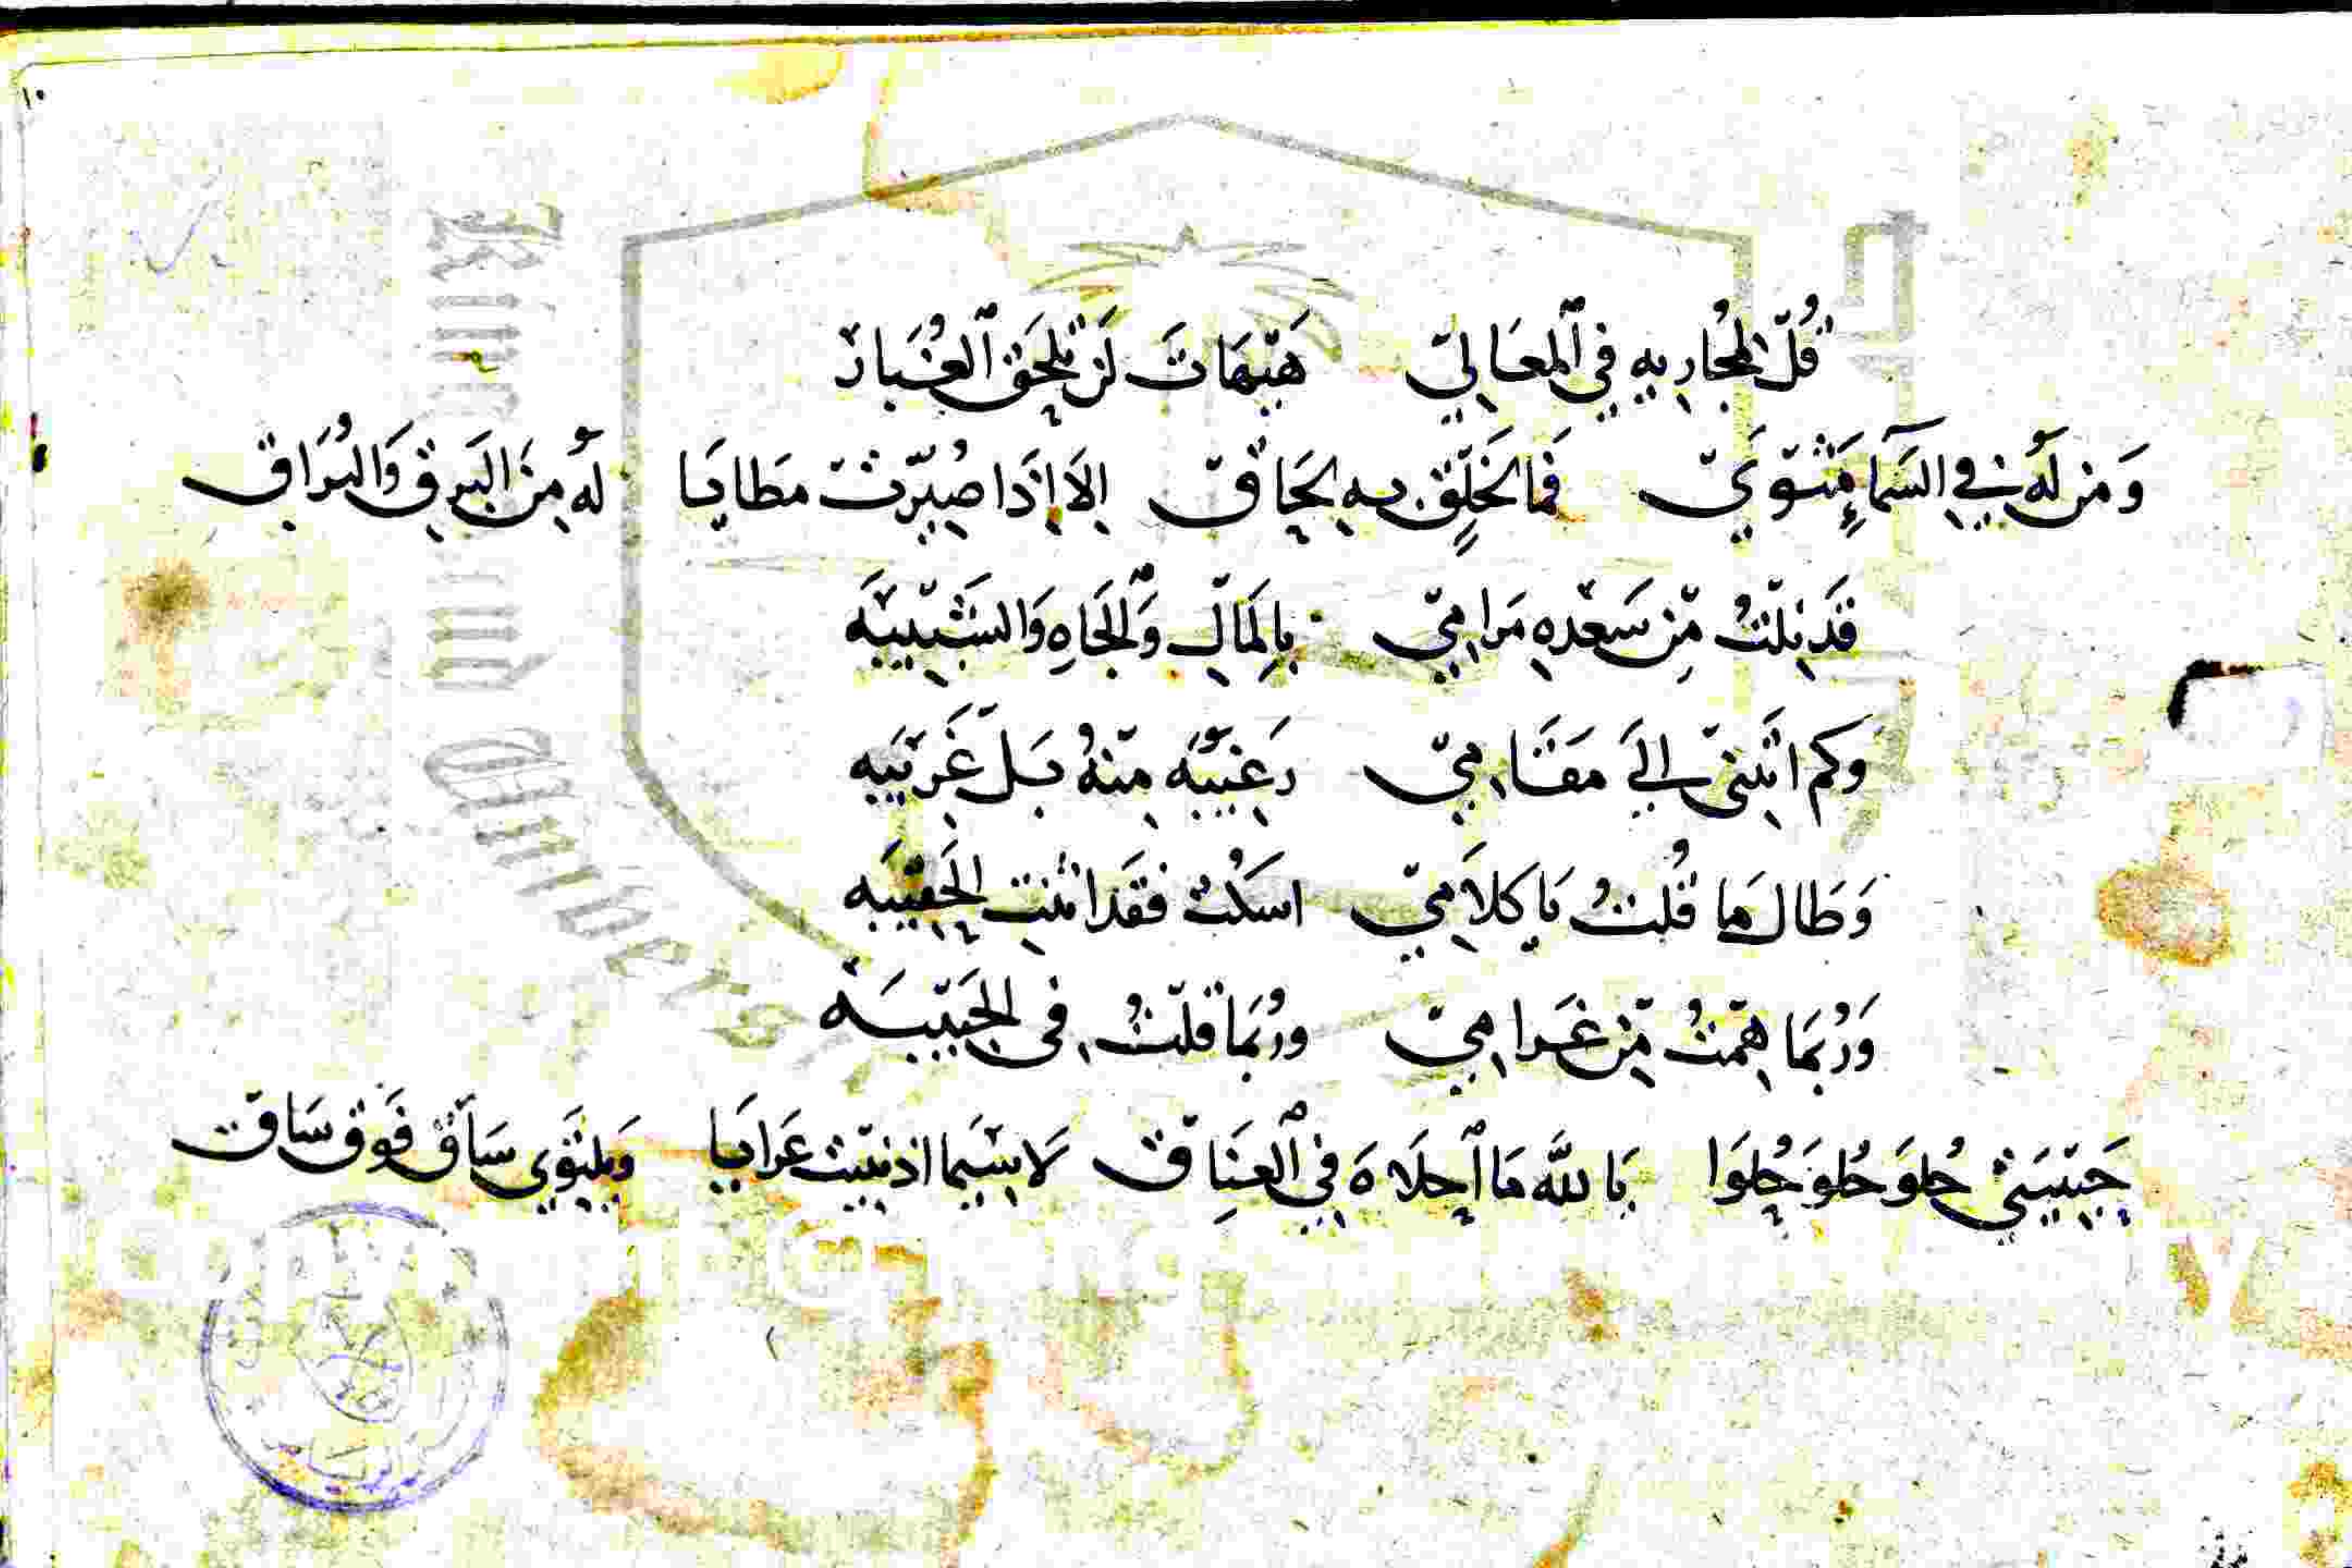 ١٠
قُلْ لِمُجَارِيهِ فِي ٱلْمَعَالِيْ هَيْهَاتَ لَنْ تَلْحَقِ ٱلغُبَارْ
وَمَن لَهُ فِي السَّمَاءِ مَثْوَيْ فمَا لخَلْقٍ بهِ لِحَاقْ إلَا إِذَا صُيِّرتْ مَطَايَا لهُ مِنَ البَرقِ وَالبُرَاقِ
قَد نِلْتُ مِّن سَعْدِهِ مَرَامِيْ بِالمَالِ وَٱلجَاهِ وَالشَّبِيبَهْ
وَكم اتَتني إلَى مَقَامِيْ رَغيبَهْ مِنهُ بَل غَرِيبَه
وَطَال مَا قُلتُ يَا كَلَامِيْ اسكُتْ فَقَد انْتنت الحَقِيبَه
وَرُبمَا هِمْتُ مِّن غَرَامِيْ ورُبمَا قلْتُ فِي الحَبِيبَهْ
حَبِيبَتيْ حُلوَ حُلوَ حُلوَا يَا للَّه مَا ٱحلَاهَ فِي ٱلعِنَاقْ لَا سِيَّمَا اذ نبيت عَرَايَا وَيلتَوِي سَاقْ فَوقَ سَاقْ